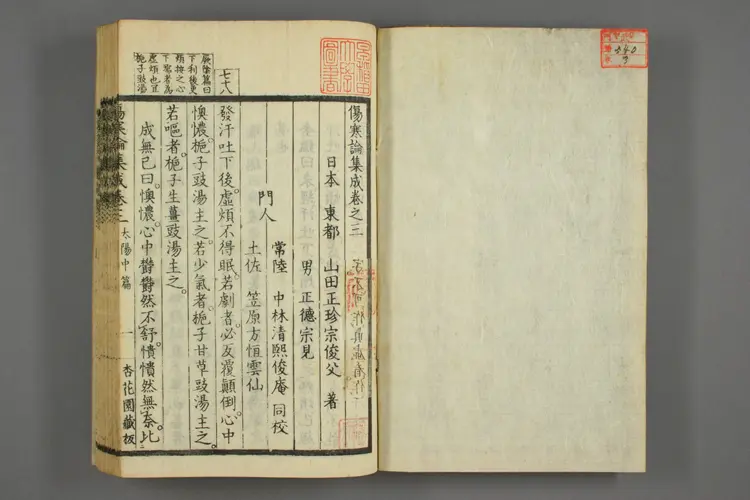 傷寒論集成卷之三
日本 東都 山田正珍宗俊父 著
男 正德宗見
門人
常陸 中林清熙俊庵 同校
土佐 笠原方恒雲仙
七十八
發汗吐下後。虛煩不得眠。若劇者必反覆顚倒。心中
懊憹。梔子豉湯主之。若少氣者。梔子甘草豉湯主之。
若嘔者。梔子生薑豉湯主之。
成無己曰。懊憹。心中鬱鬱然不舒。憒憒然無奈。比
厥陰篇曰
下利後更
煩按之心
下濡者爲
虛煩也宜
梔子豉湯
傷寒論集成卷三 太陽中篇 一 杏花園藏板